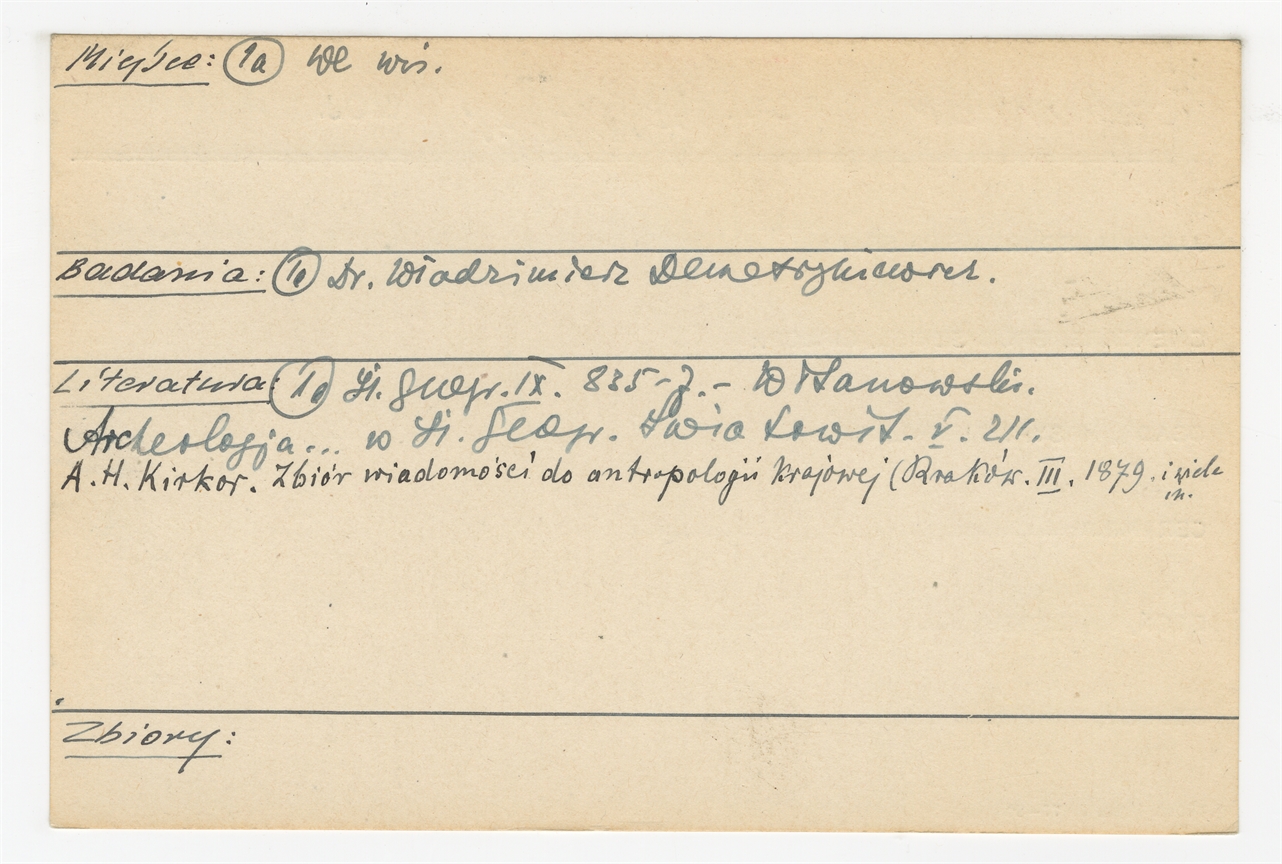 Miejsce: (1a) We wsi.
Badania: (1a) Dr. Włodzimierz Demetrykiewicz.
Literatura: (1a) Sł. geogr. IX. 835-7. - W. Stanowski.
Archeologja... w Sł. geogr. Światowit. V. 211.
A. H. Kirkor. Zbiór wiadomości do antropologii krajowej (Kraków. III. 1879. i wiele
in.
Zbiory: